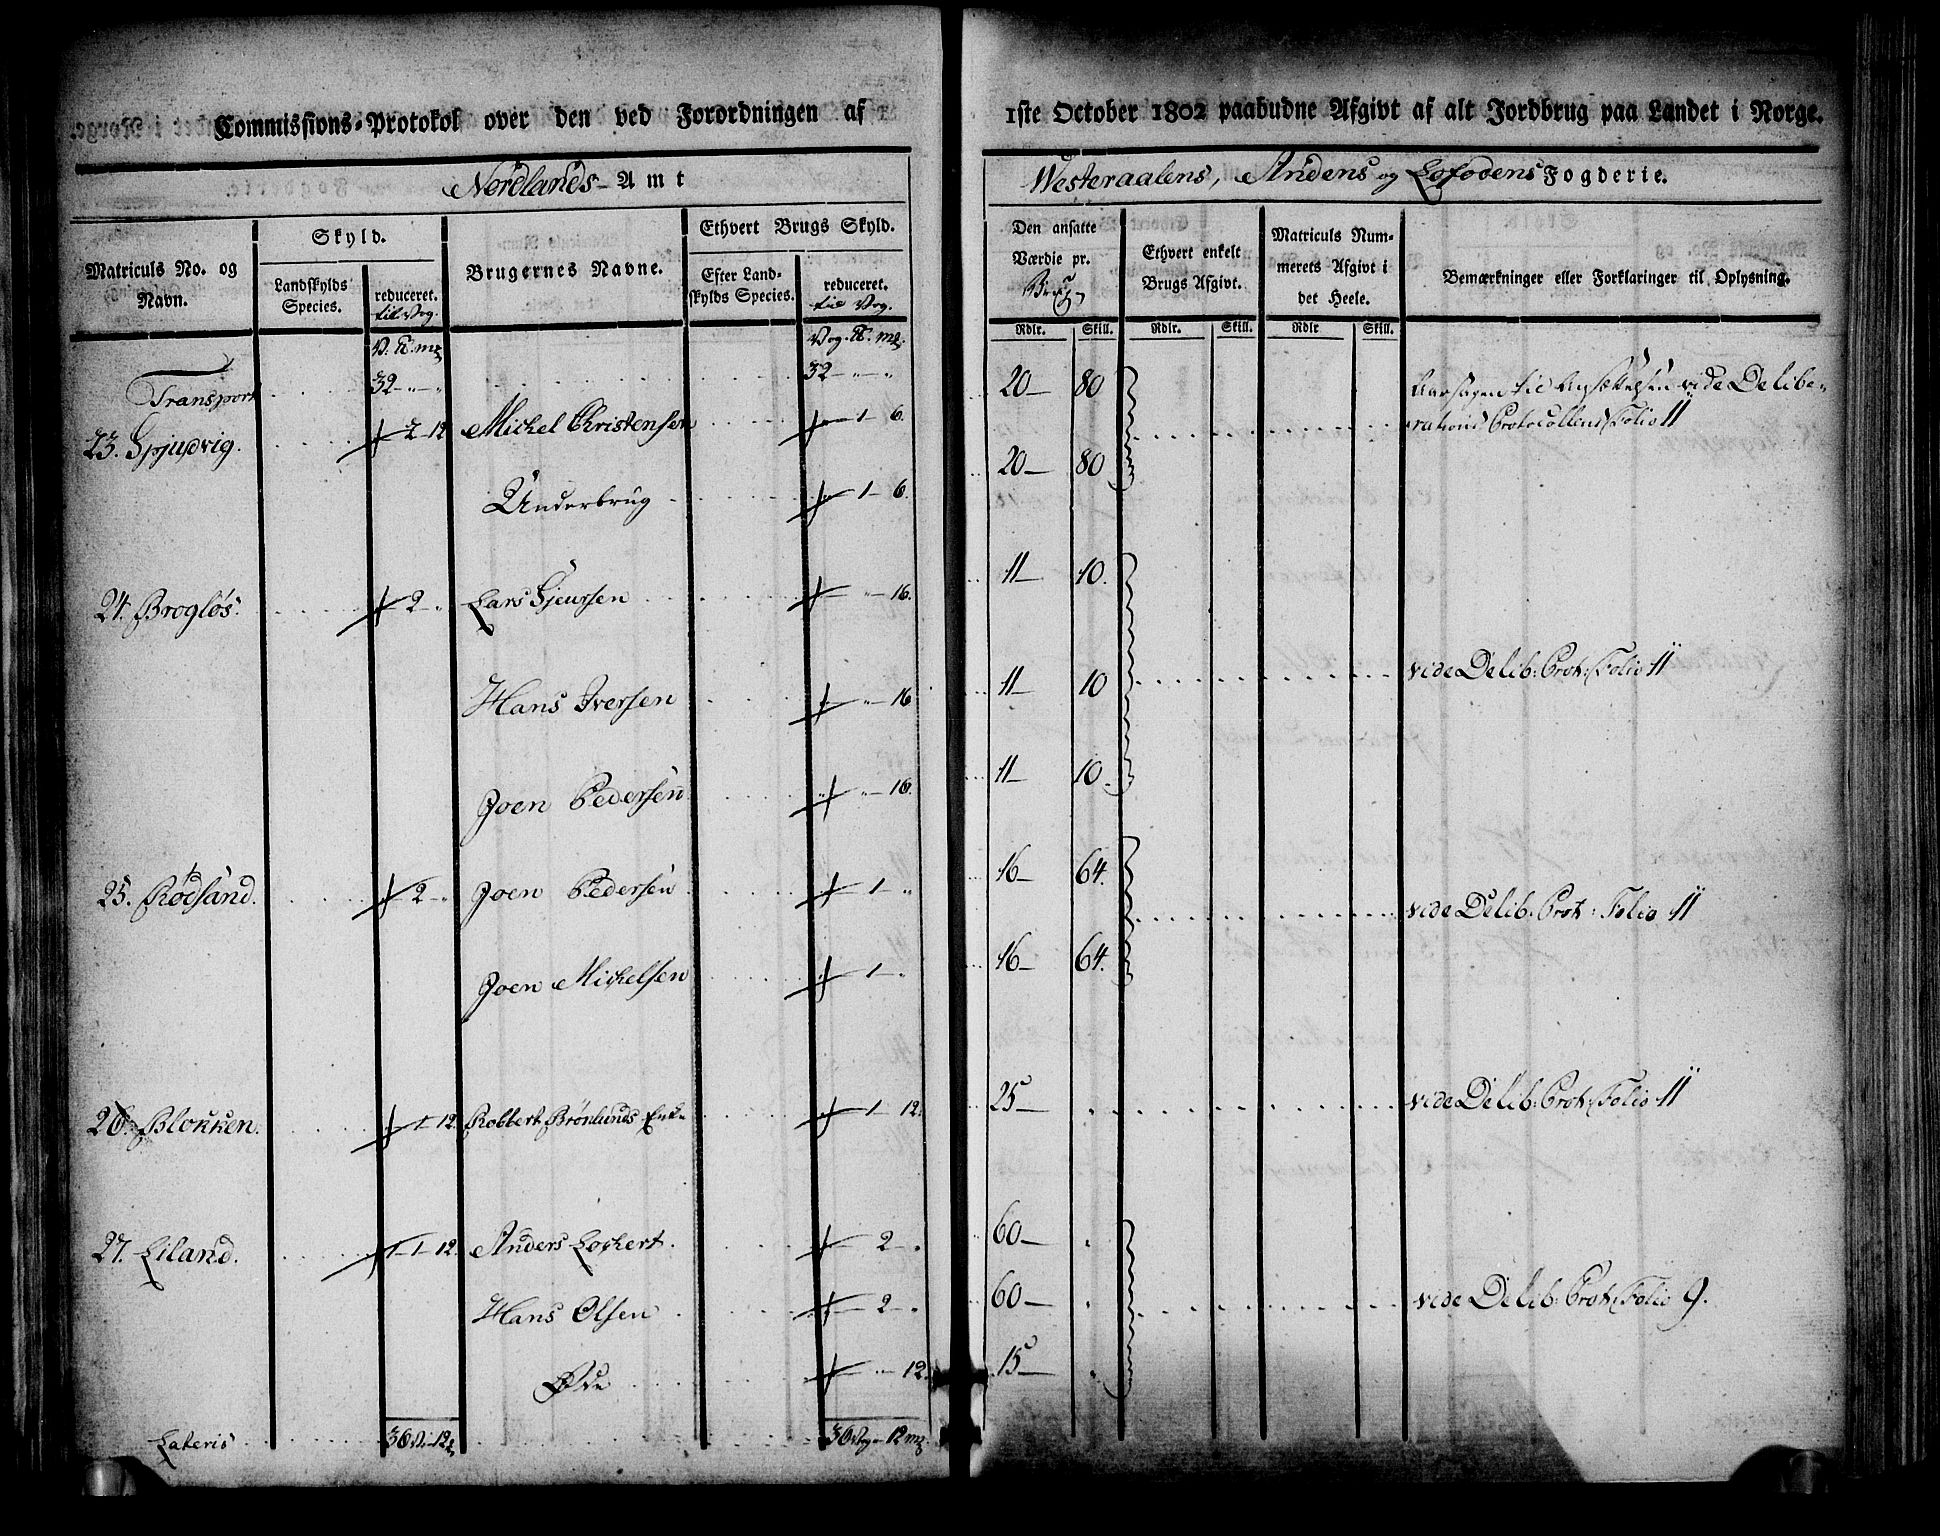 Commissions-Protokol over den ved Forordningen af 1ste October 1802 paabudne Afgivt af alt Jordbrug paa Landet i Norge.
Nordlands Amt
Westeraalens, Andens og Lofodens Fogderie.
Matriculs No. og Navn.
Skyld.
Landskylds Species.
reduceret. til Vog.
Brugernes Navne.
Ethvert Brugs Skyld.
Efter Landskylds Species.
reduceret. til Vog.
Den ansatte Værdie pr. Brug
Rdlr. Skill.
Ethvert enkelt Brugs Afgivt.
Rdlr. Skill.
Matriculs Nummerets Afgivt i det Heele.
Rdlr Skill.
Bemærkninger eller Forklaringer til Oplysning.
Transport 32 " " 32 " "
23. 2 12 Michel Christensen 1 6. 20 80 Aarsagen til Ansættelsen vide Delibe-
rations Protocollens Folio 11
Underbrug 1 6. 20 80
24. Brogløs. 2 " Lars Sjeursen " 16. 11 10.
Hans Iversen " 16 11 10 vide Delib: Prot: Folio 11
Joen Pedersen " 16. 11 10.
25. Rødsand. 2 " Joen Pedersen 1 " 16 64. vide Delib: Prot: Folio 11
Joen Michelsen 1 " 16 64.
26. Blokken. 1 12 Robbert Brönlunds Enke 1 12. 25 vide Delib: Prot: Folio 11
27. Liland. 1 12 Anders Lockert. 2 " 60 "
Hans Olsen 2 " 60 " vide Delib: Prot: Folio 9.
Øde " 12. 15 "
Lateris 36 V. 12 36 Vog 12 mk